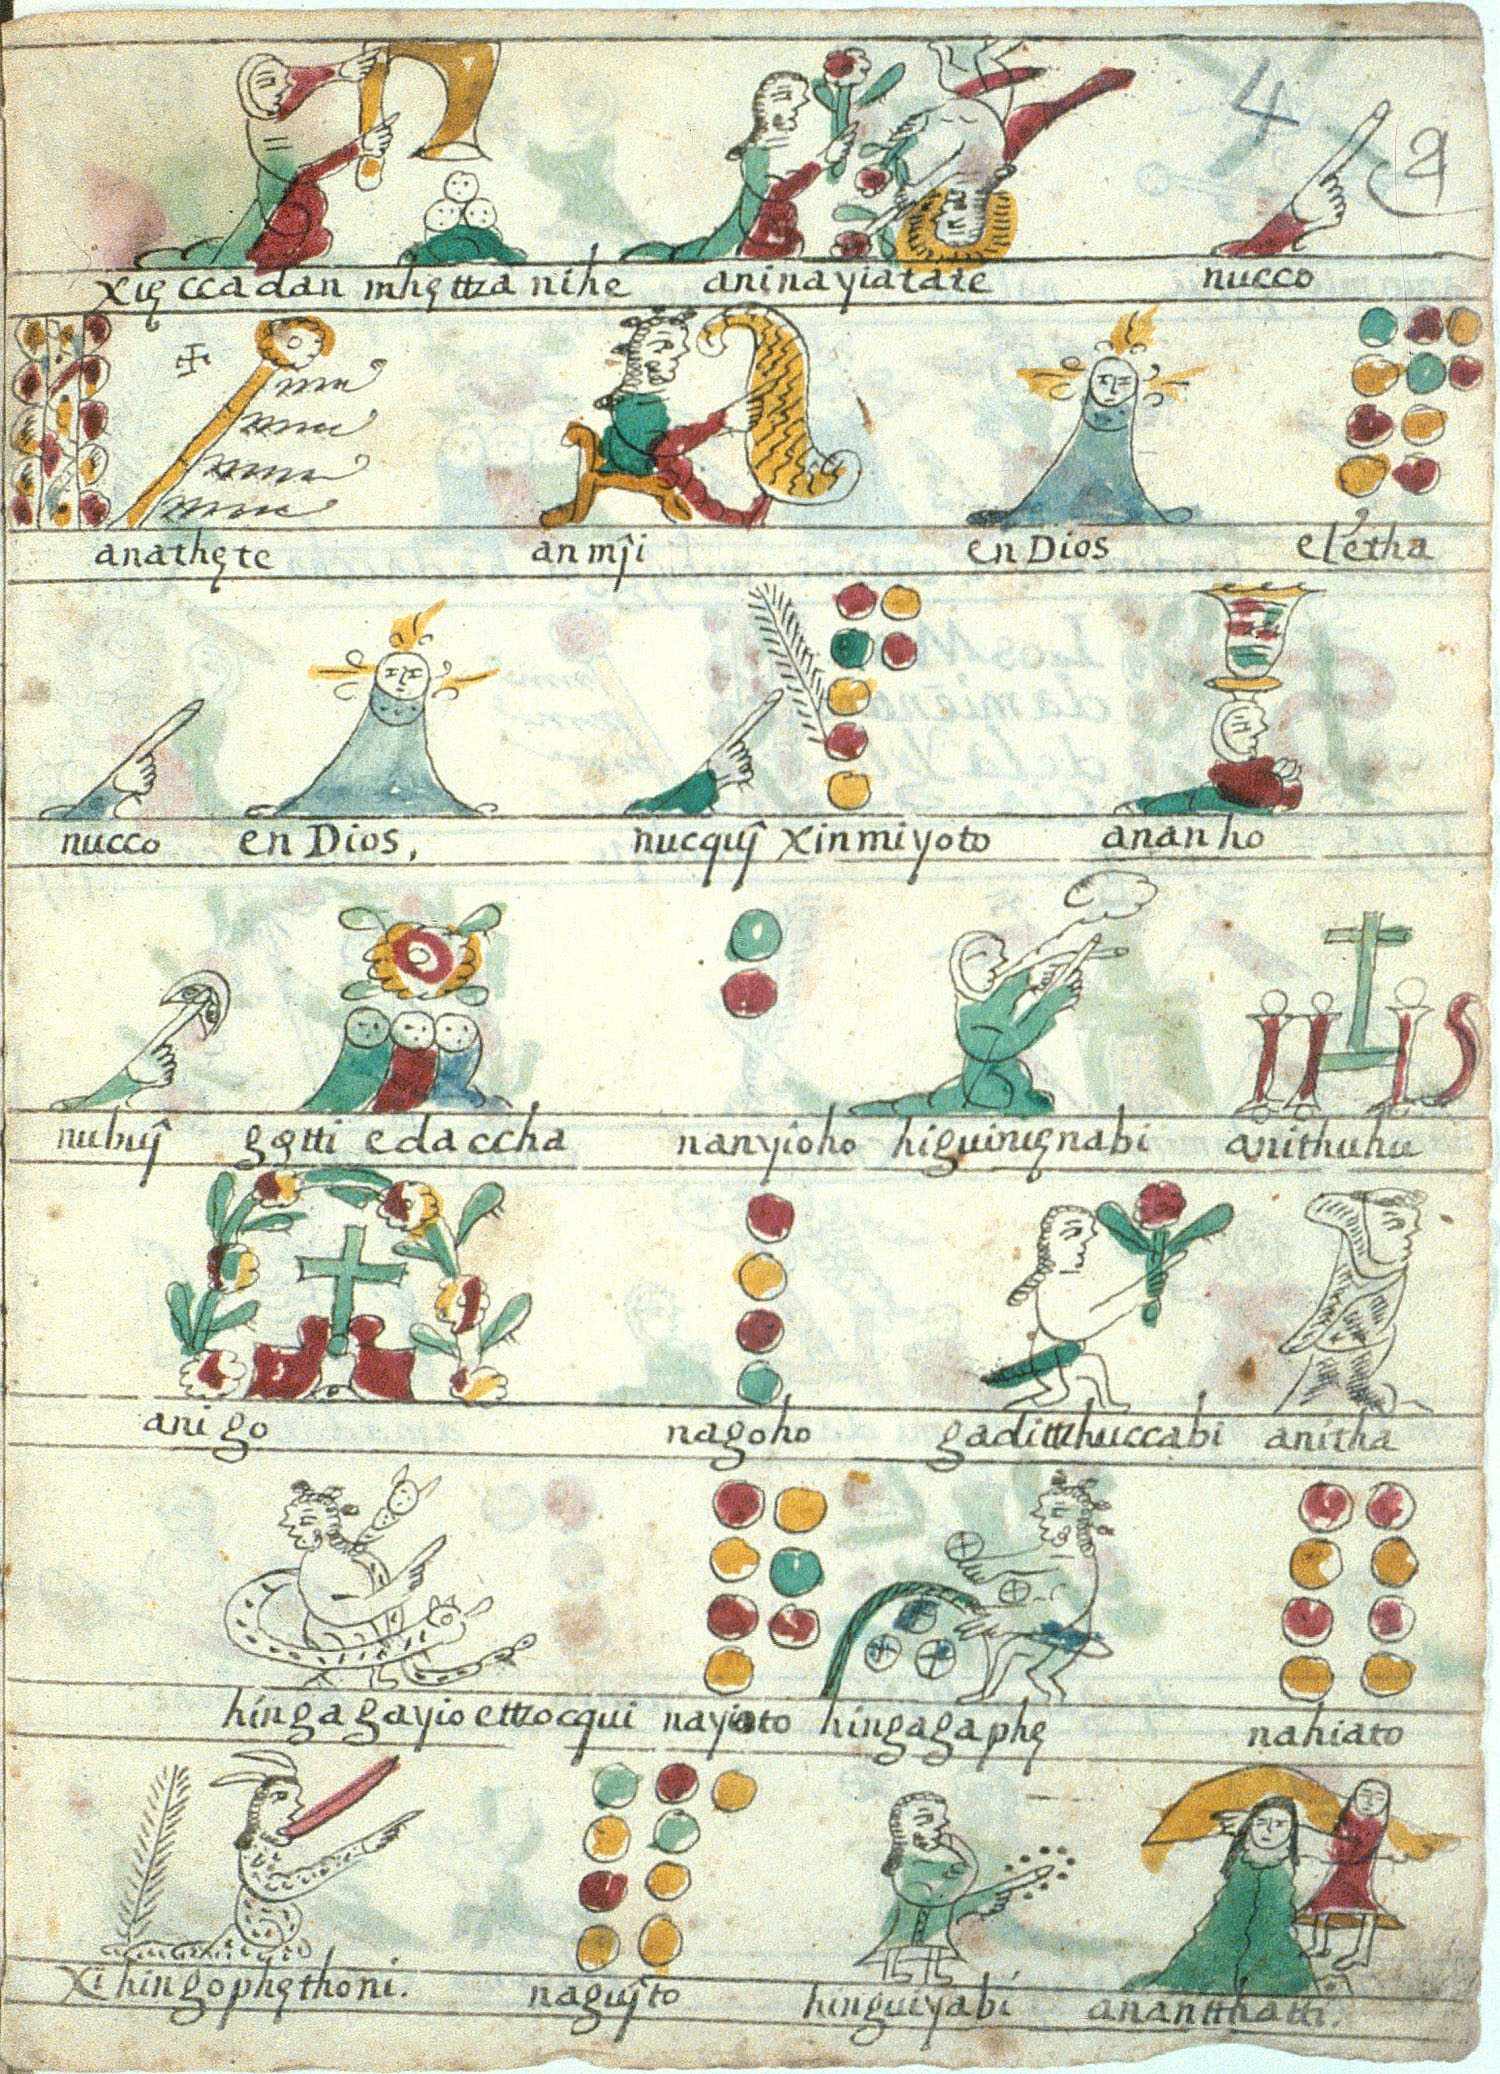 4
xię ccadan mhęttza nihe aninayiatate nucco
anathęte anmȷ̂i en Dios eletha
nucco en Dios, nucquŷ xinmiyoto ananho
nubuŷ gętti edaccha nanyioho higuinuęnabi anithuhu
anigo nagoho gadittzhuccabi anitha
hingagayioettzocqui nayioto hingagaphę nahiato
xihingophęthoni. naguŷto hinguiyabi anantthatti.